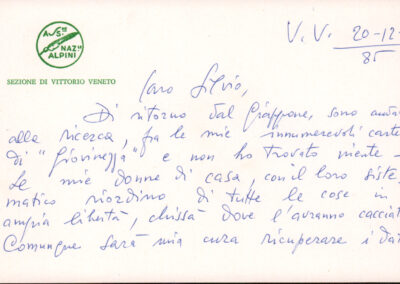 ASS. NAZ. ALPINI
SEZIONE DI VITTORIO VENETO
V.V. 20-12-
85
Caro Silvio,
Di ritorno dal Giappone, sono andat
alla ricerca, fra le mie innumerevoli carte
di "giovinezza" e non ho trovato niente -
Le mie donne di casa, con il loro siste
matico riordino di tutte le cose in
ampia libertà, chissà dove l'avranno cacciat
Comunque sarà mia cura ricuperare i dat